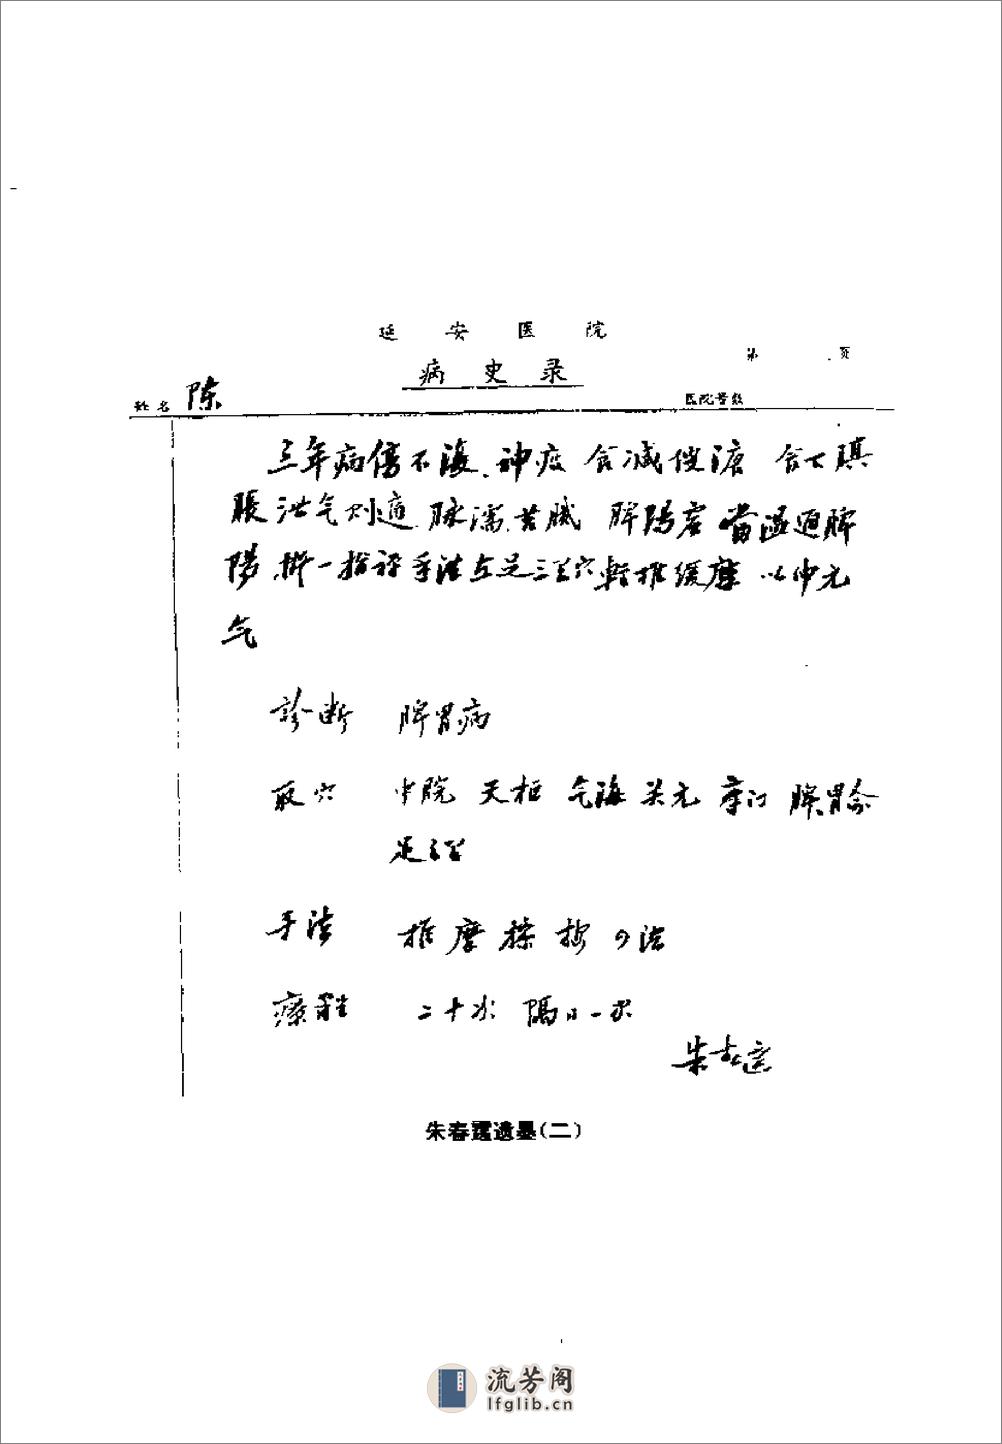 延安医院
第 页
病史录
姓名 陈
医院号数
三年病伤不复、神疲 食减便溏 食下䐜
胀 泄气则适 脉濡 苔腻 脾陽虚 当温通脾
陽 拟一指禅手法与足三里穴転推缓摩 以伸元
气
診断 脾胃病
取穴 中脘 天枢 气海 关元 章门 脾胃俞
足三里
手法 推摩揉按 法
療程 二十次 隔日一次
朱春霆
朱春霆遗墨(二)
流芳阁
lfglib.cn